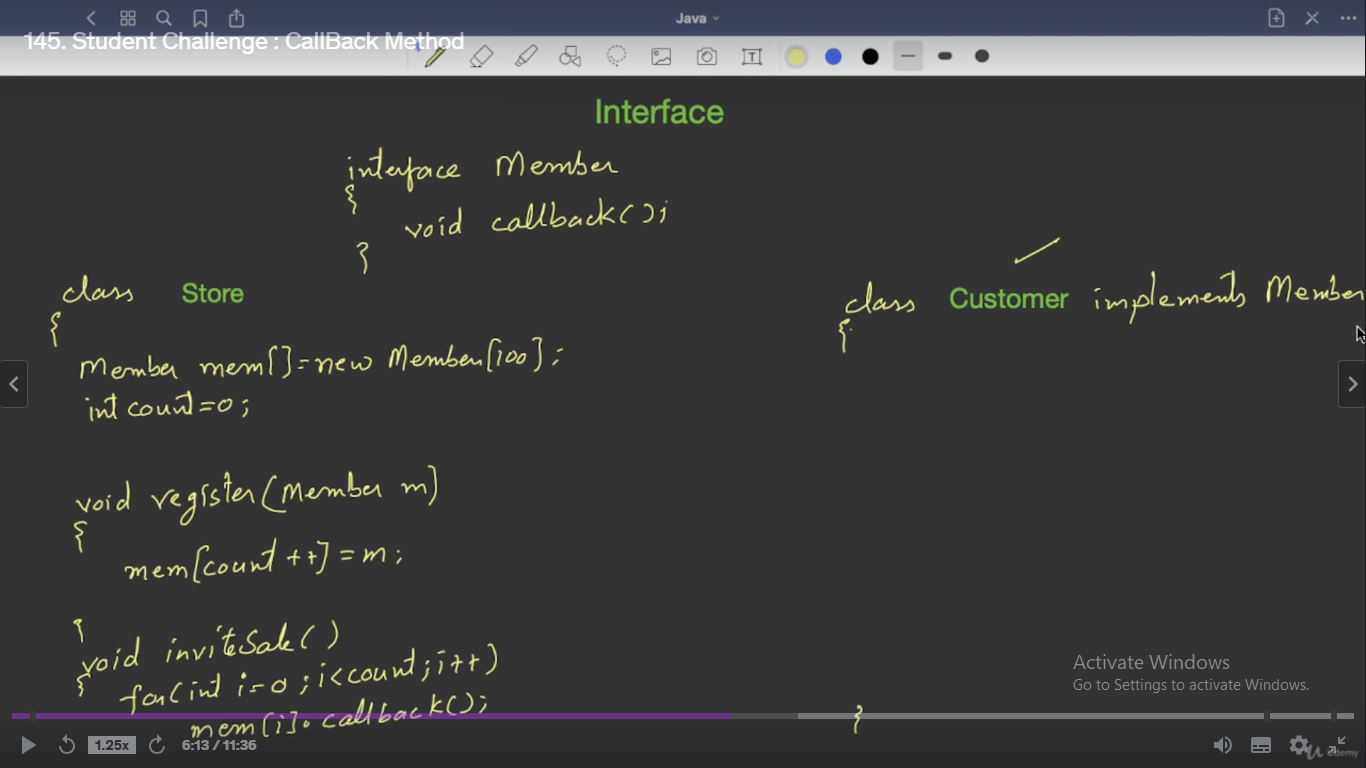 Java
145. Student Challenge : CallBack Method
Interface
interface Member
{
void callback();
}
class Store
{
Member mem[]=new Member[100];
int count=0;
void register(Member m)
{
mem[count++]=m;
}
void inviteSale()
{
for(int i=0;i<count;i++)
mem[i].callback();
class Customer implements Member
{
}
Activate Windows
Go to Settings to activate Windows.
1.25x
6:13 / 11:36
Udemy